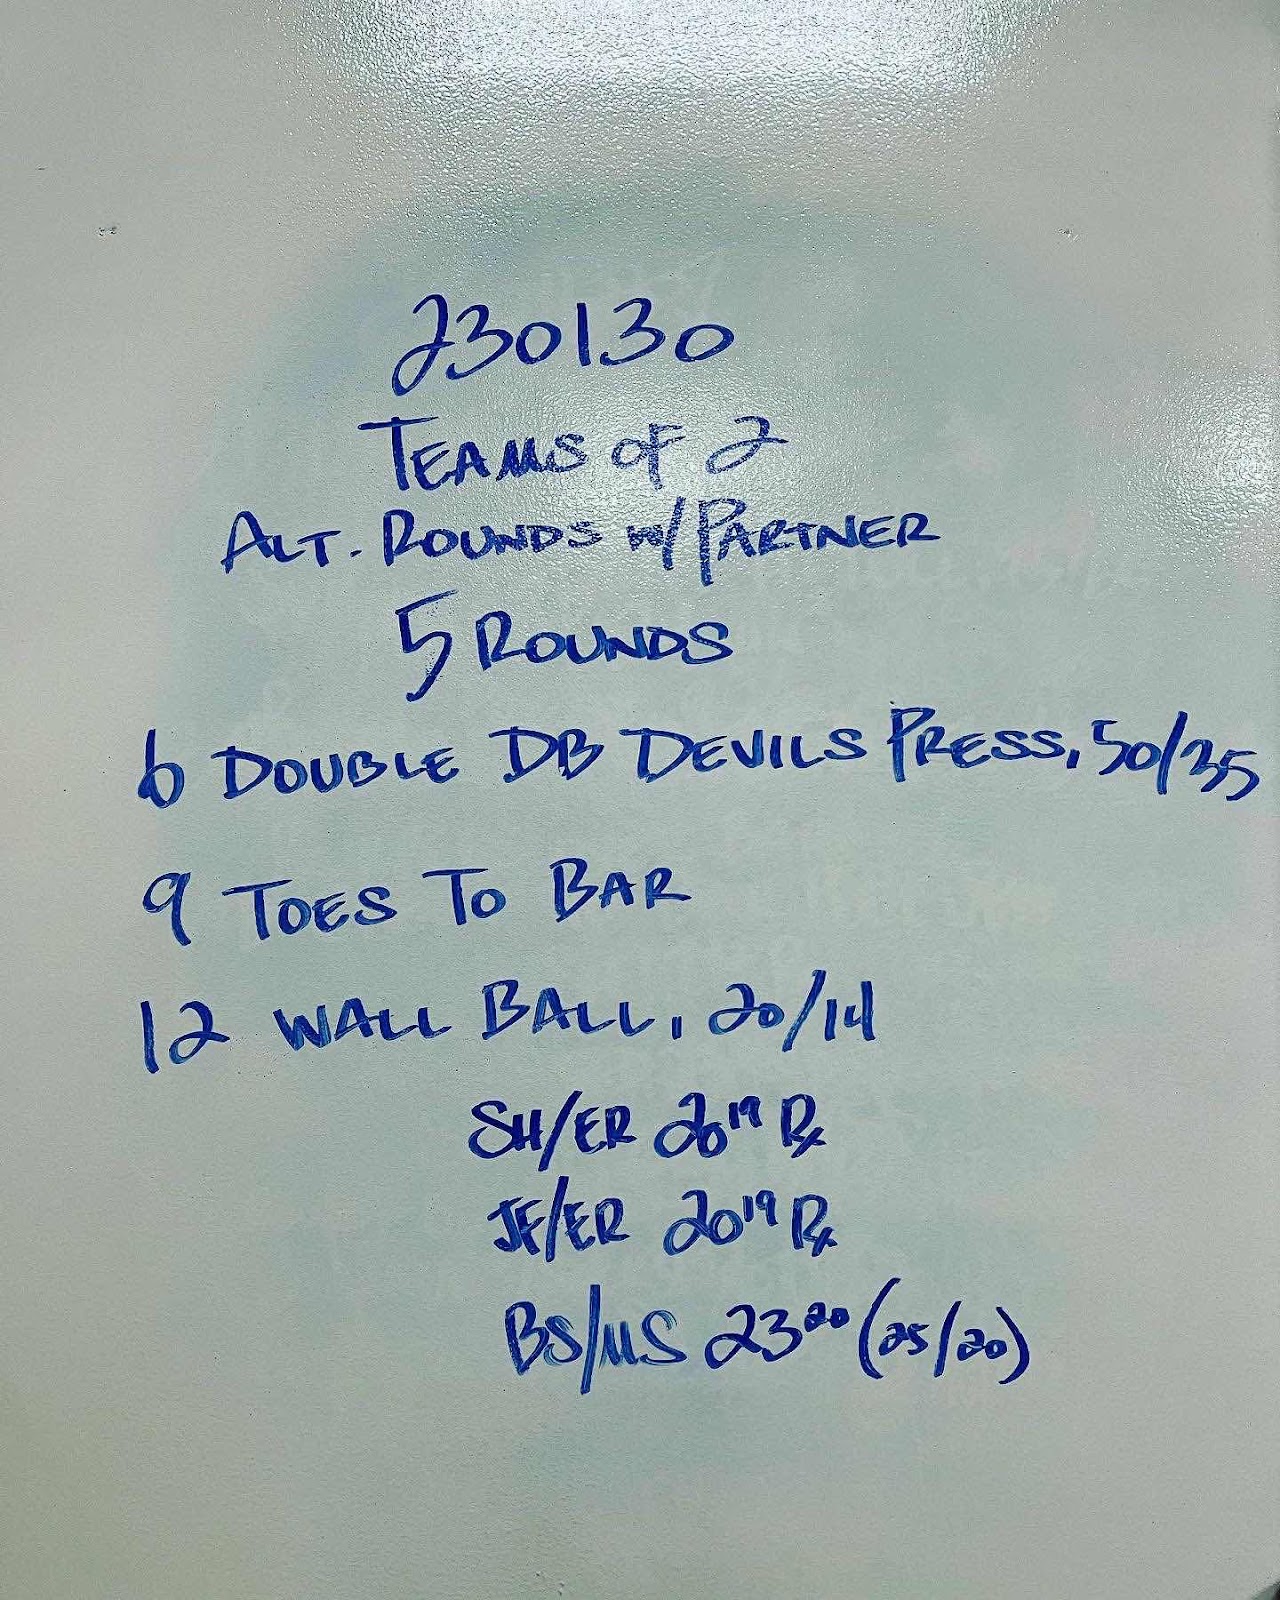 230130
TEAMS OF 2
ALT. ROUNDS W/ PARTNER
5 ROUNDS
6 DOUBLE DB DEVILS PRESS, 50/35
9 TOES TO BAR
12 WALL BALL, 20/14
SH/ER 20¹⁹ Rx
JF/ER 20¹⁹ Rx
BS/MS 23²⁰ (25/20)